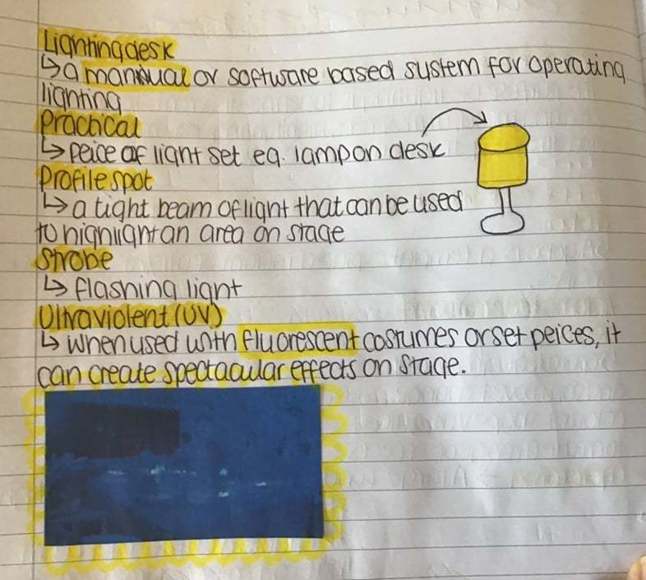 Lighting desk
↳ a manual or software based system for operating
lighting
Practical
↳ peice of light set eg. lamp on desk
Profile spot
↳ a tight beam of light that can be used
to highlight an area on stage
Strobe
↳ flashing light
Ultraviolent (UV)
↳ when used with fluorescent costumes or set peices, it
can create spectacular effects on stage.